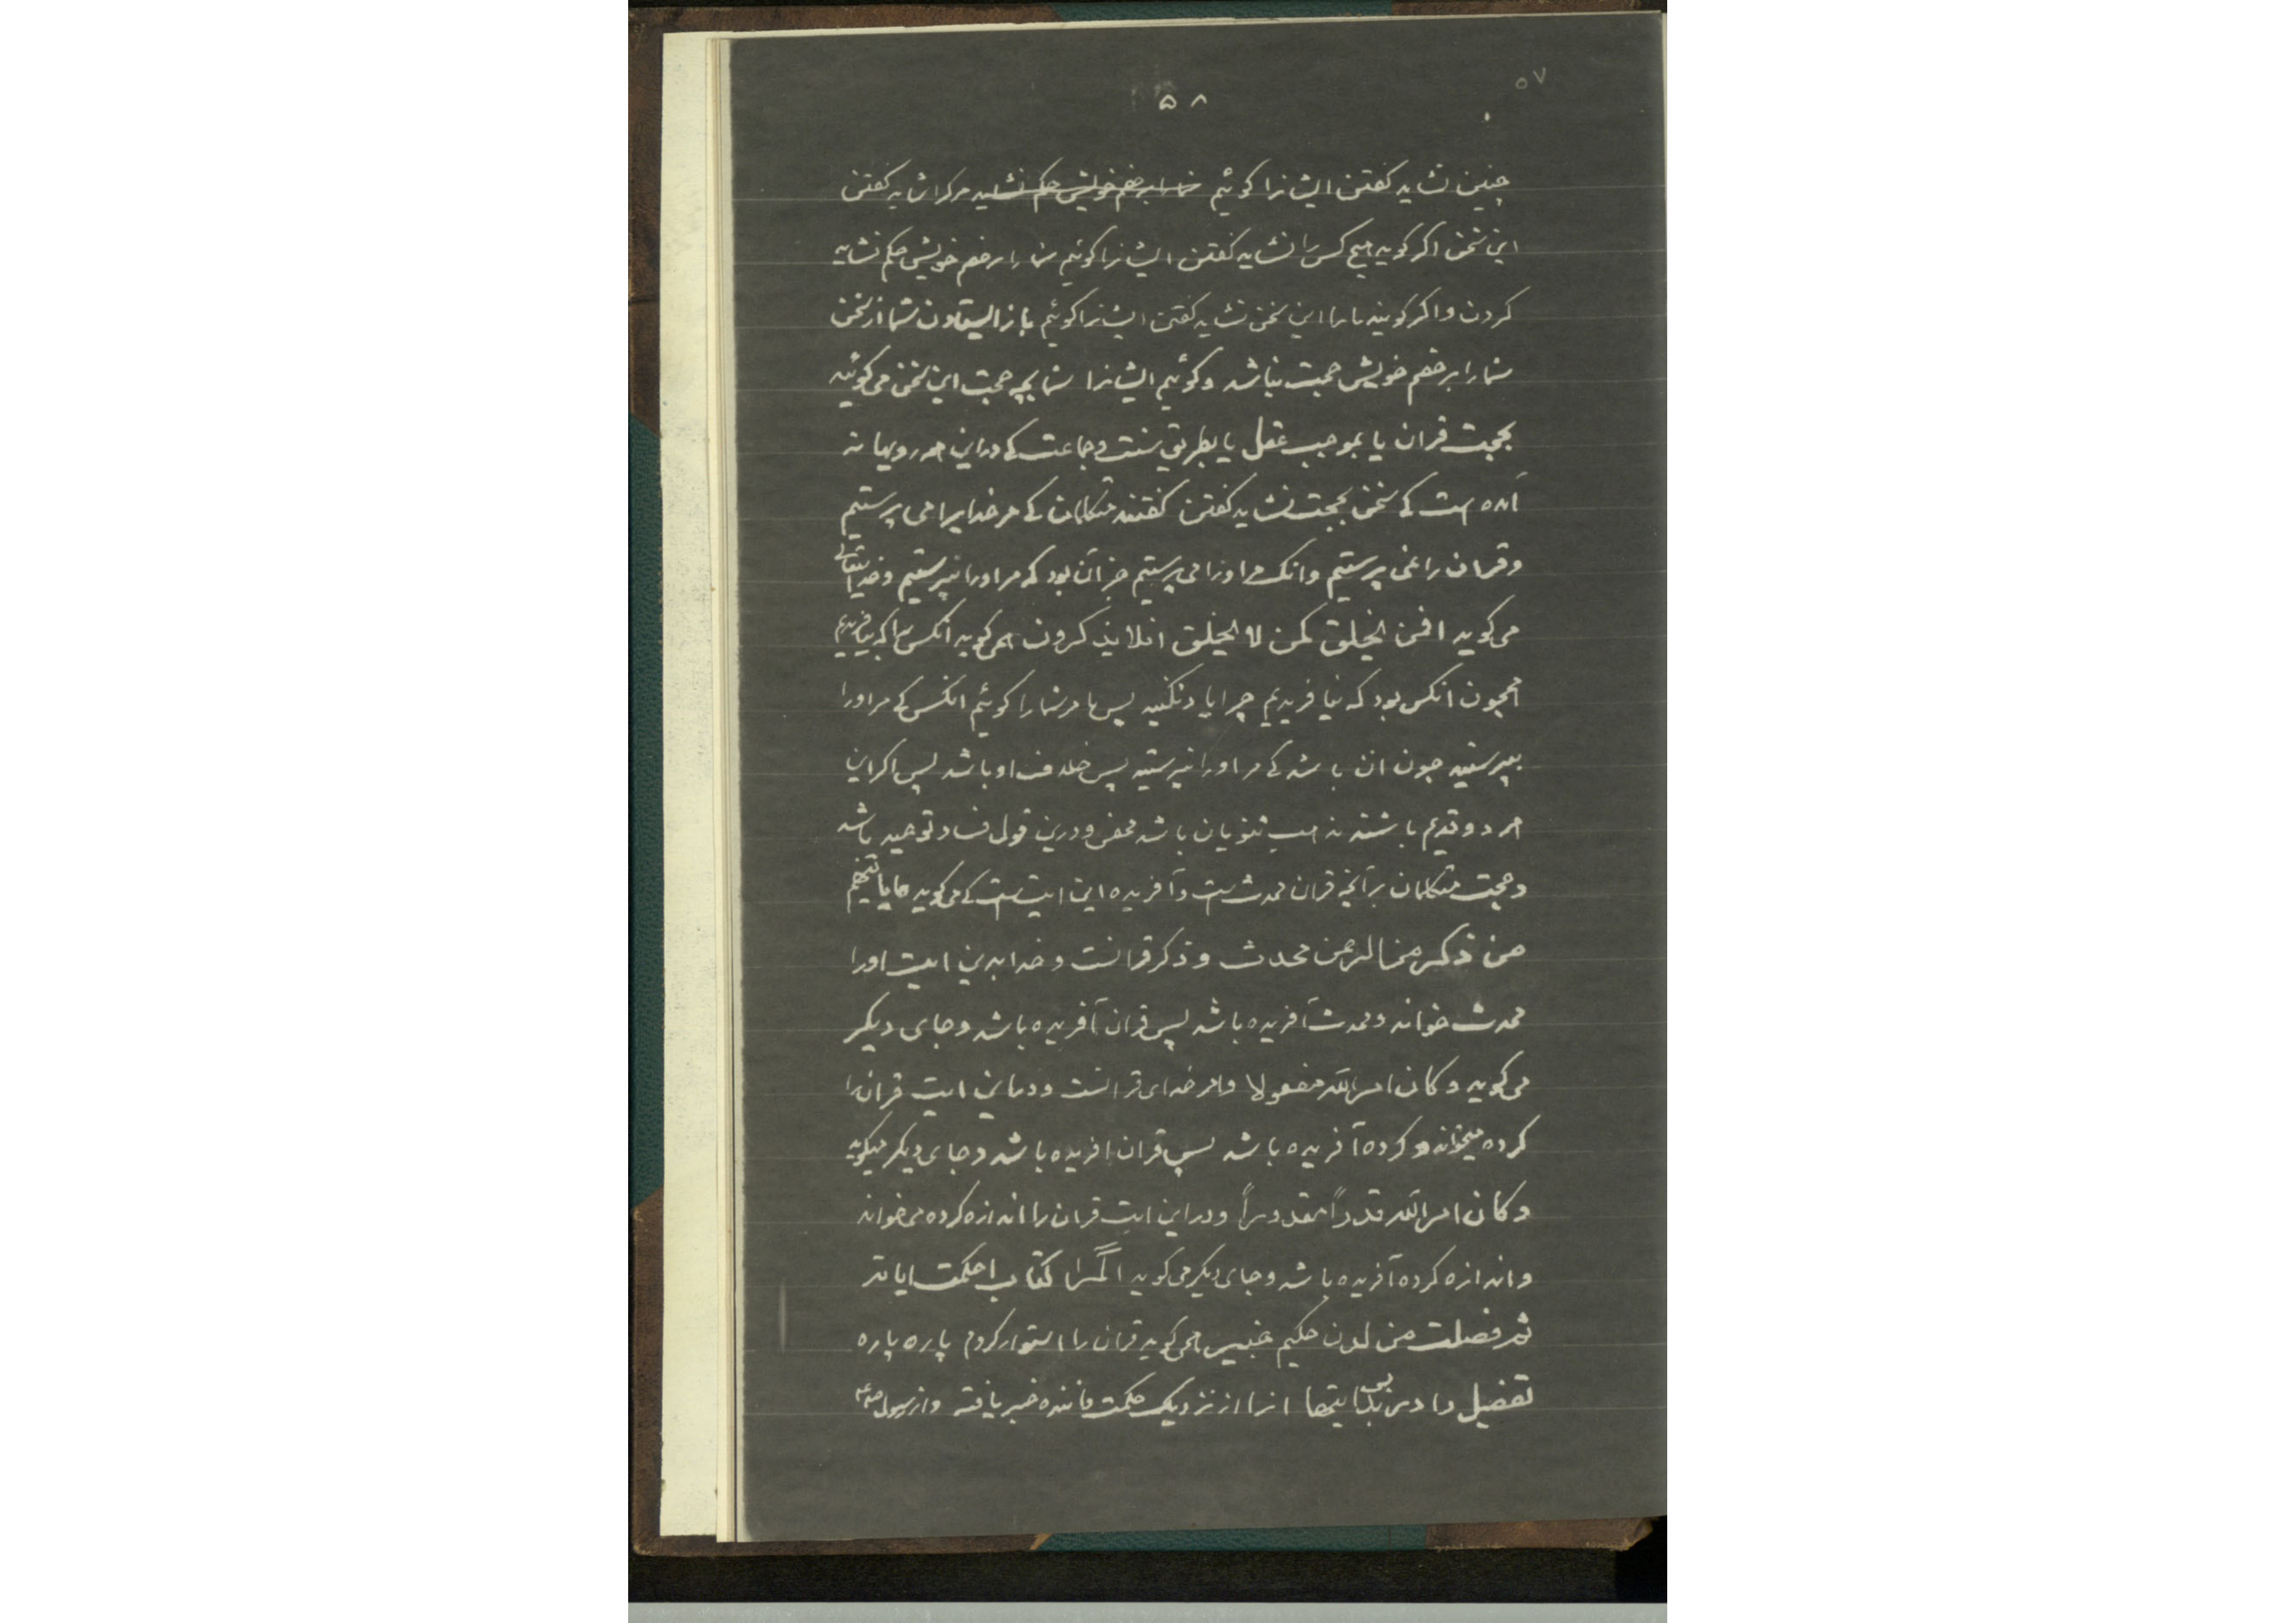 ۵۷
۵۸
چنین نشاید کفتن ایشانرا کوئیم شما را بر خصم خویش حکم نشاید مرکرا شاید کفتن
این سخن اکر کوید هیچ کس را نشاید کفتن ایشانرا کوئیم شما را بر خصم خویش حکم نشاید
کردن و اکر کویند ما را این سخن نشاید کفتن ایشانرا کوئیم باز ایستادن شما از سخن
شما را بر خصم خویش حجت نباشد و کوئیم ایشانرا شما بچه حجت این سخن می کوئید
بحجت قران یا بموجب عقل یا بطریق سنت و جماعت کی در این همه رویها نه
آمده است کی سخن بحجت نشاید کفتن کفتند متکلمان کی مر خدایرا می پرستیم
و قران را نمی پرستیم و انک مر اورا می پرستیم جز آن بود که مر اورا نپرستیم و خدایتعالی
می کوید افمن یخلق کمن لا یخلق افلا یذکرون همی کوید آنکس را که بیافریدیم
همچون انکس بود که نیافریدیم چرا یاد نکنید پس ما مر شما را کوئیم انکس کی مر اورا
بپرستید چون ان باشد کی مر اورا نپرستید پس خلاف او باشد پس اکر این
هر دو قدیم باشند مذهب ثنویان باشد محض و درین قول فساد توحید باشد
و حجت متکلمان بر آنچه قران محدث است و آفریده این ایت است کی می کوید ما یاتیهم
من ذکر من الرحمن محدث و ذکر قرانست و خدا بدین ایت اورا
محدث خواند و محدث آفریده باشد پس قران آفریده باشد و جای دیکر
می کوید و کان امر الله مفعولا و امر خدای قرانست و در این ایت قران را
کرده میخواند و کرده آفریده باشد پس قران افریده باشد و جای دیکر میکوید
و کان امر الله قدراً مقدوراً و در این ایت قران را اندازه کرده می خواند
و اندازه کرده آفریده باشد و جای دیکر می کوید الٓمرا کتاب احکمت ایاته
ثم فصلت من لدن حکیم خبیر همی کوید قران را استوار کردم پاره پاره
تفضیل دادس ایتها انرا از نزدیک حکمت خبر یافته و از رسول